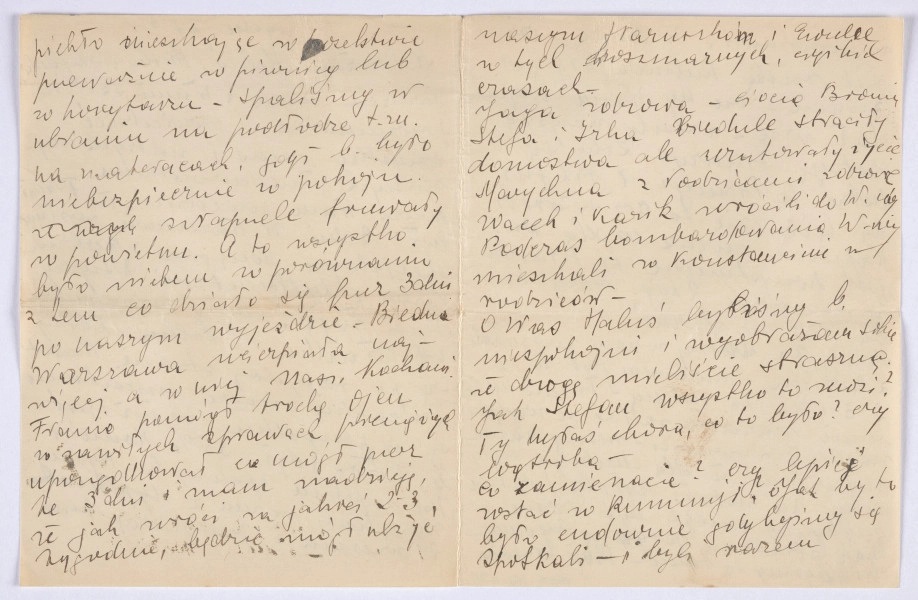 piekło mieszkając w poselstwie
przeważnie w piwnicy lub
w korytarzu – spaliśmy w
ubraniu na podłodze t.zn.
na materacach, gdyż b. było
niebezpiecznie w pokoju.
szrapnele fruwały
w powietrzu. A to wszystko
było niebem w porównaniu
z tem co działo się przez 3 dni
po naszym wyjeździe – Biedna
Warszawa ucierpiała naj-
więcej a w niej nasi Kochani.
Franio pomógł trochę Ojcu
w zawiłych sprawach pieniężnych
uporządkował co mógł przez
te 3 dni i mam nadzieję,
że jak wróci za jakieś 2-3
tygodnie, będzie mógł ulżyć
naszym Staruszkom i
w tych koszmarnych, ciężkich
czasach –
Jaga zdrowa – ciocia Bronia
Stefa i Irka Biedule straciły
domostwa ale uratowały życie
Marychna z Rodzicami zdrowe
Wacek i Kazik wrócili do W-wy
Podczas bombardowania W-wy
mieszkali w Konstancinie u
rodziców –
O Was Haluś byliśmy b.
niespokojni i wyobrażam sobie
że drogę mieliście straszną.
Jak Stefan wszystko to znosi?
Ty byłaś chora, co to było? czy
wątroba –
co zamierzacie? czy lepiej
zostać w Rumunji? Jak by to
było cudownie gdybyśmy się
spotkali – i byli razem